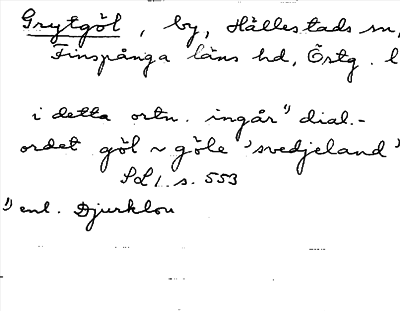 Grytgöl, by, Hällestads sn,
Finspånga läns hd, Östg. l
i detta ortn. ingår ¹) dial.-
ordet göl ~ göle 'svedjeland'
SL 1. s. 553
¹) enl. Djurklou